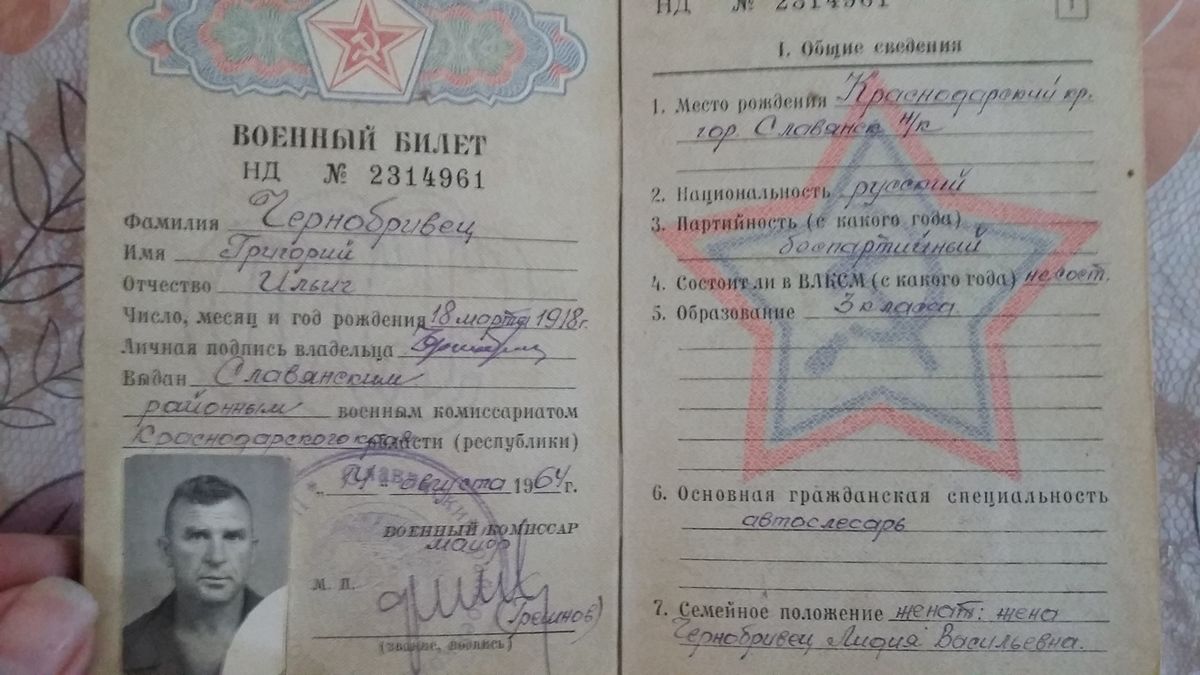 ВОЕННЫЙ БИЛЕТ
НД № 2314961
Фамилия Чернобривец
Имя Григорий
Отчество Ильич
Число, месяц и год рождения 18 марта 1918г.
Личная подпись владельца
Выдан Славянским
районным военным комиссариатом
Краснодарского края области (республики)
августа 1964 г.
ВОЕННЫЙ КОМИССАР
майор
М. П.
(Грешнов)
(звание, подпись)
НД № 2314961
1
I. Общие сведения
1. Место рождения Краснодарский кр.
гор. Славянск н/к
2. Национальность русский
3. Партийность (с какого года)
беспартийный
4. Состоит ли в ВЛКСМ (с какого года) не сост.
5. Образование 3 класса
6. Основная гражданская специальность
автослесарь
7. Семейное положение женат: жена
Чернобривец Лидия Васильевна.